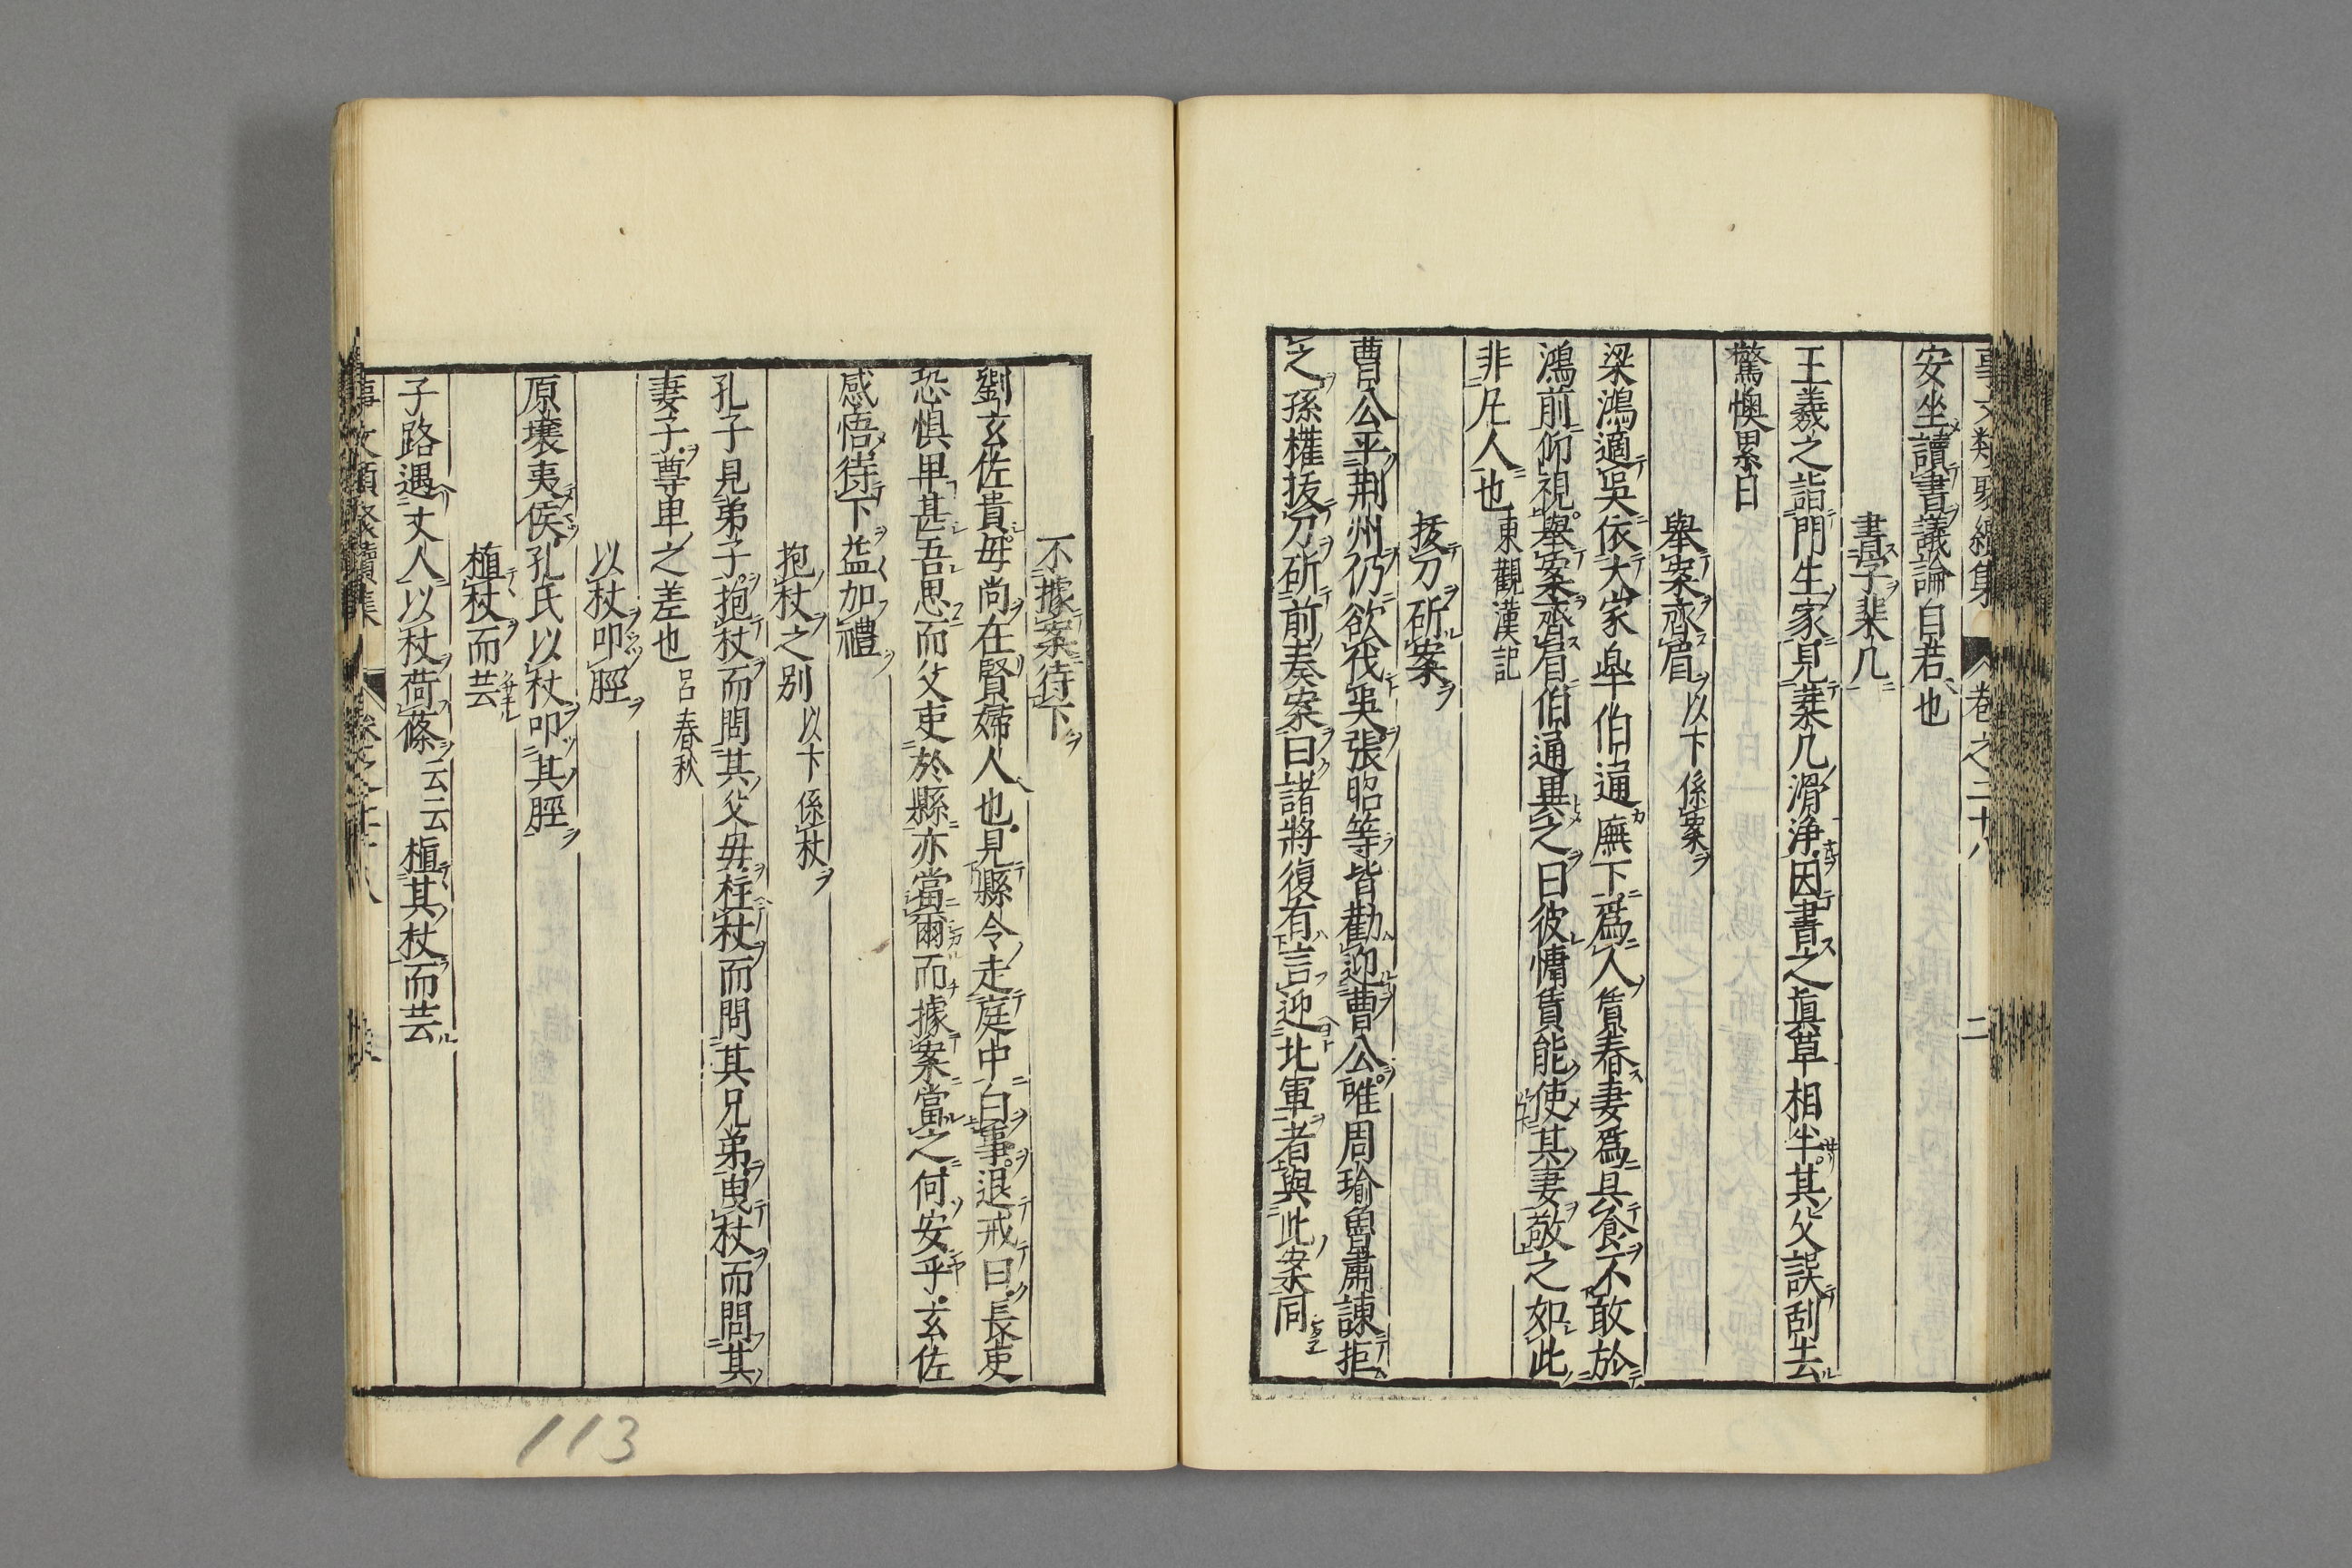 事文類聚續集 卷之二十八 二
安坐讀書議論自若也
書字棐几
王羲之詣門生家見棐几滑淨因書之眞草相半其父誤刮去
驚懊累日
舉案齊眉 以下係案
梁鴻適吳依大家皐伯通廡下爲人賃舂妻爲具食不敢於
鴻前仰視舉案齊眉伯通異之曰彼傭賃能使其妻敬之如此
非凡人也 東觀漢記
拔刀斫案
曹公平荆州仍欲伐吳張昭等皆勸迎曹公唯周瑜魯肅諫拒
之孫權拔刀斫前奏案曰諸將復有言迎北軍者與此案同
不據案待下
劉玄佐貴母尚在賢婦人也見縣令走庭中白事退戒曰長吏
恐惧卑甚吾思而父吏於縣亦當爾而據案當之何安乎玄佐
感悟待下益加禮
抱杖之别 以下係杖
孔子見弟子抱杖而問其父母柱杖而問其兄弟曳杖而問其
妻子尊卑之差也 呂春秋
以杖叩脛
原壤夷俟孔氏以杖叩其脛
植杖而芸
子路遇丈人以杖荷蓧云云植其杖而芸
事文類聚續集
113